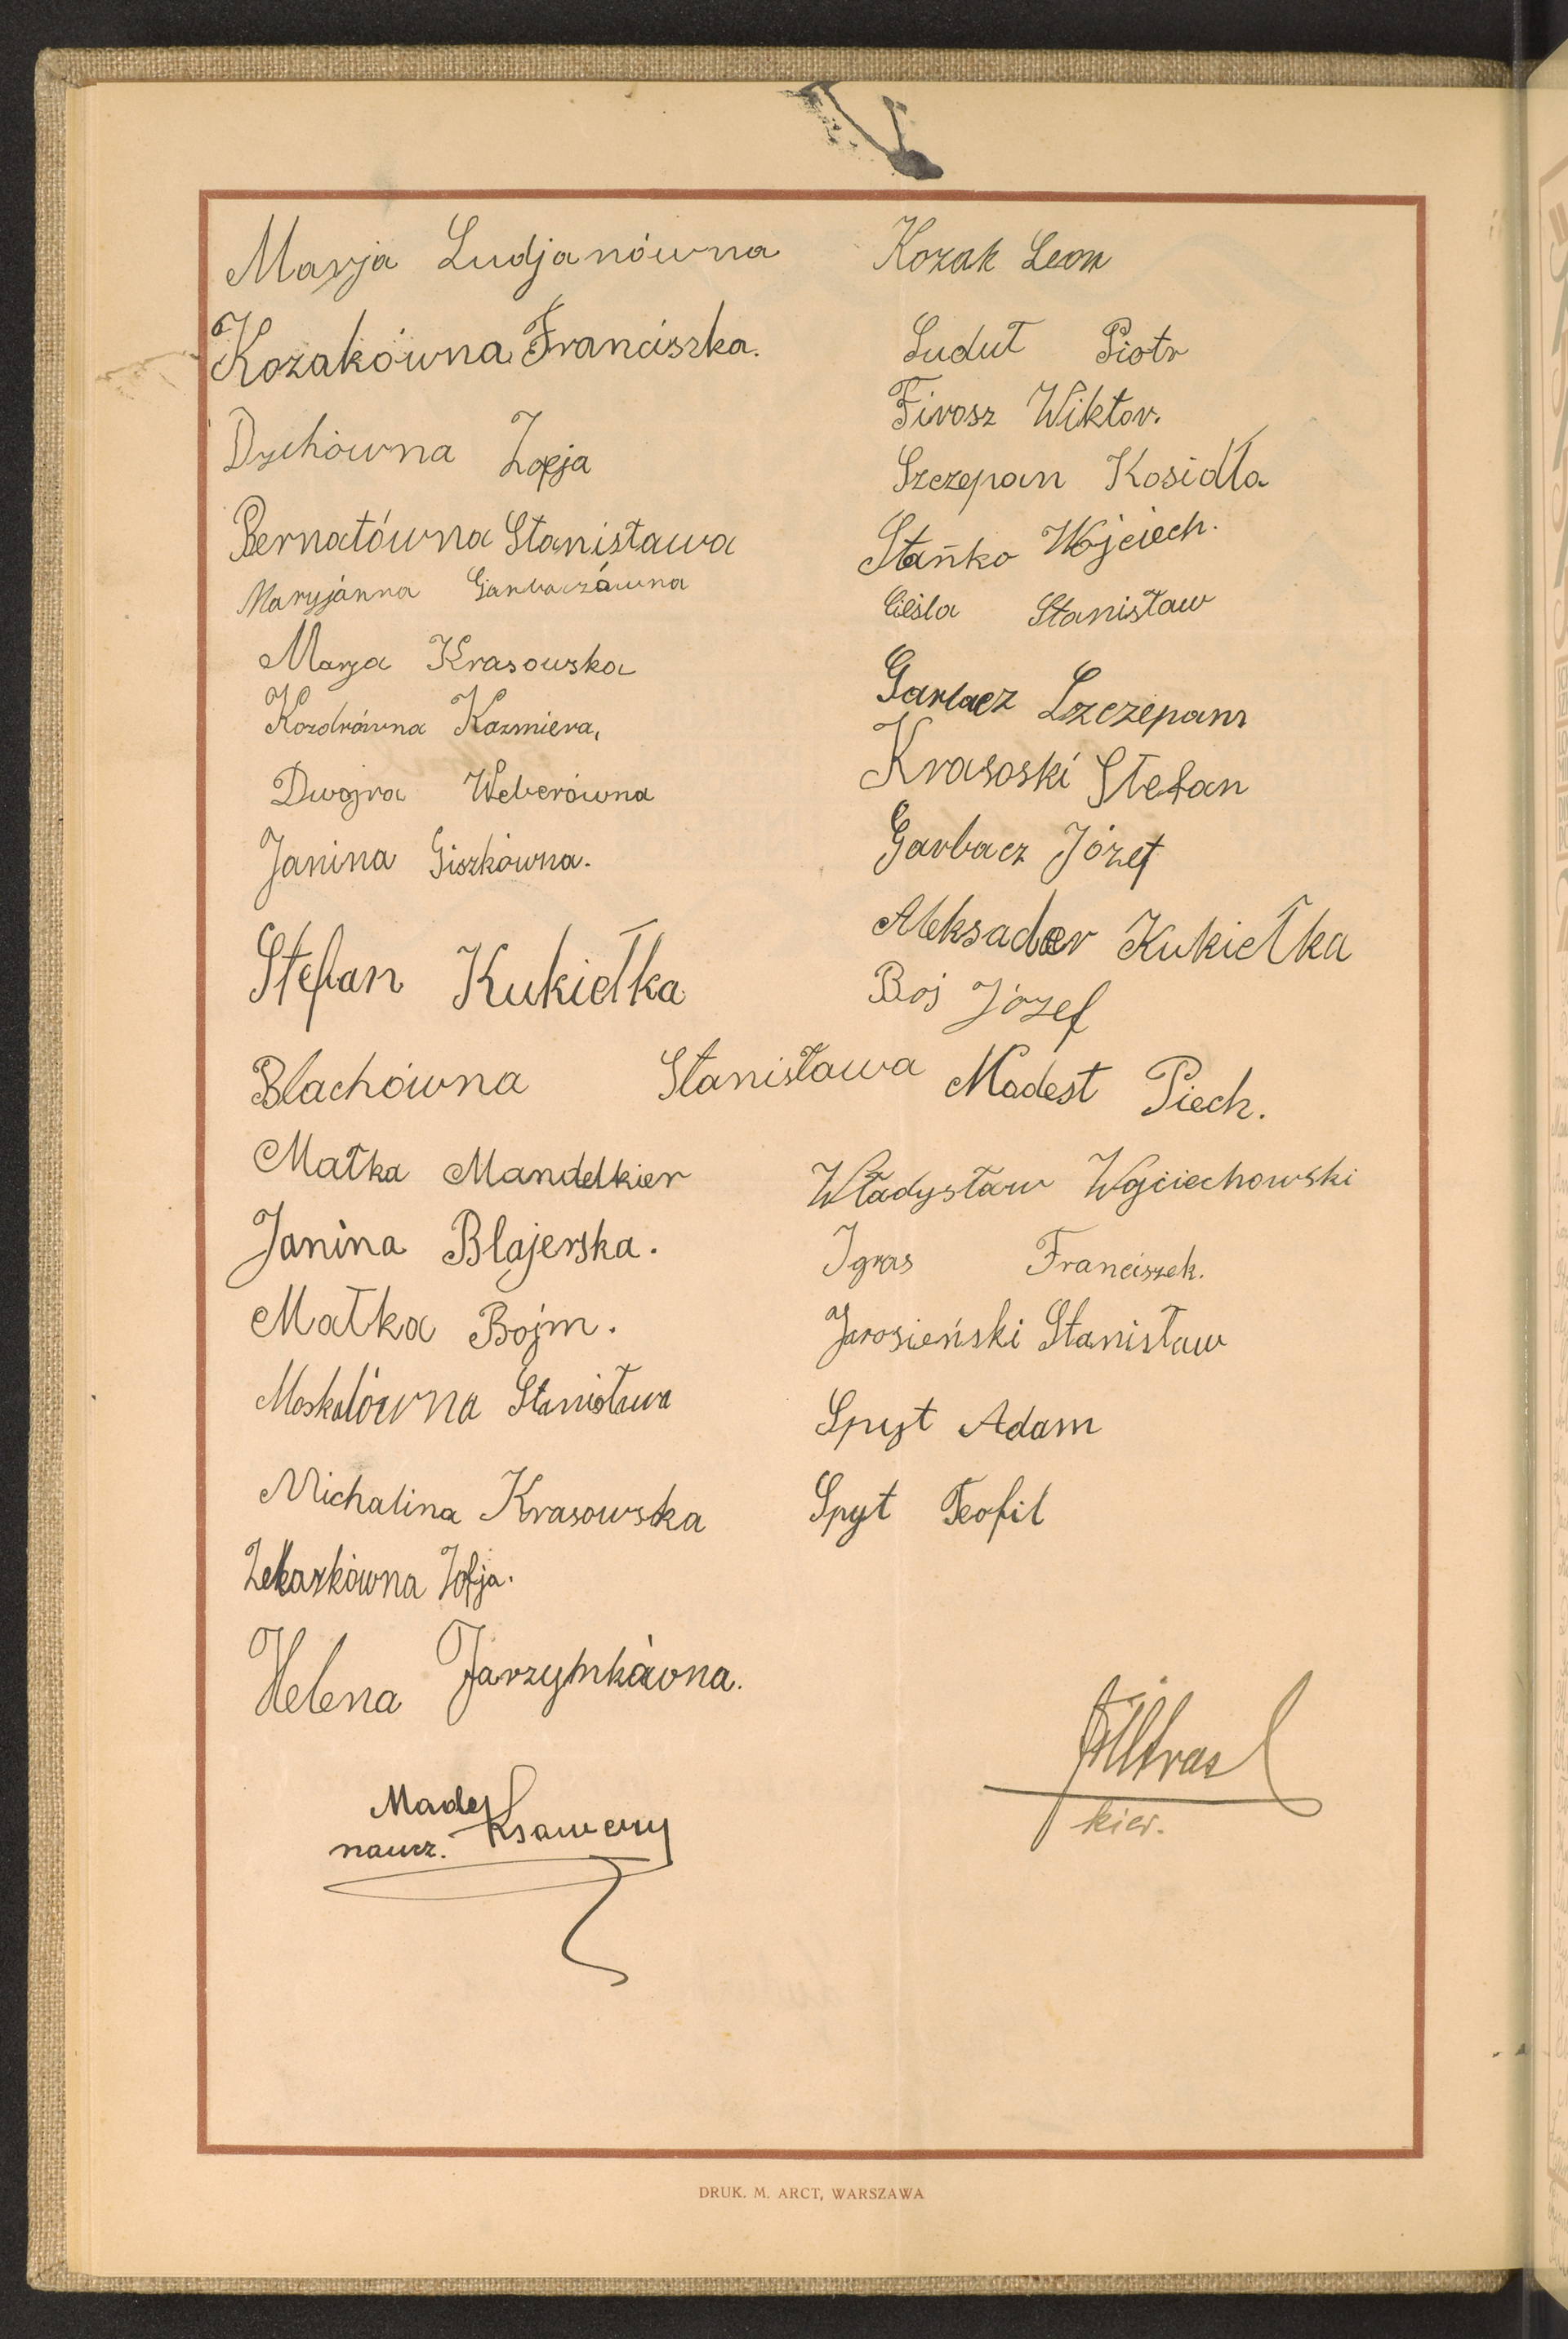 Marja Ludjanówna
Kozakówna Franciszka.
Dychówna Zofja
Bernatówna Stanisława
Maryjánna Garbaczówna
Marja Krasowska
Kozdrówna Kazmiera,
Dwojra Weberówna
Janina Giszkówna.
Stefan Kukiełka
Blachówna Stanisława
Małka Mandelkier
Janina Blajerska.
Małka Bojm.
Moskalówna Stanisława
Michalina Krasowska
Lekarkówna Zofja.
Helena Jarzymkówna.
Madej
naucz. Ksawery
Kozak Leon
Ludut Piotr
Firosz Wiktor.
Szczepan Kosidła
Stańko Wojciech.
Cieśla Stanisław
Garbacz Szczepan
Krasoski Stefan
Garbacz Józef
Aleksader Kukiełka
Boj Józef
Modest Piech.
Władysław Wojciechowski
Igras Franciszek.
Jarosieński Stanisław
Spyt Adam
Spyt Teofil
kier.
DRUK. M. ARCT, WARSZAWA